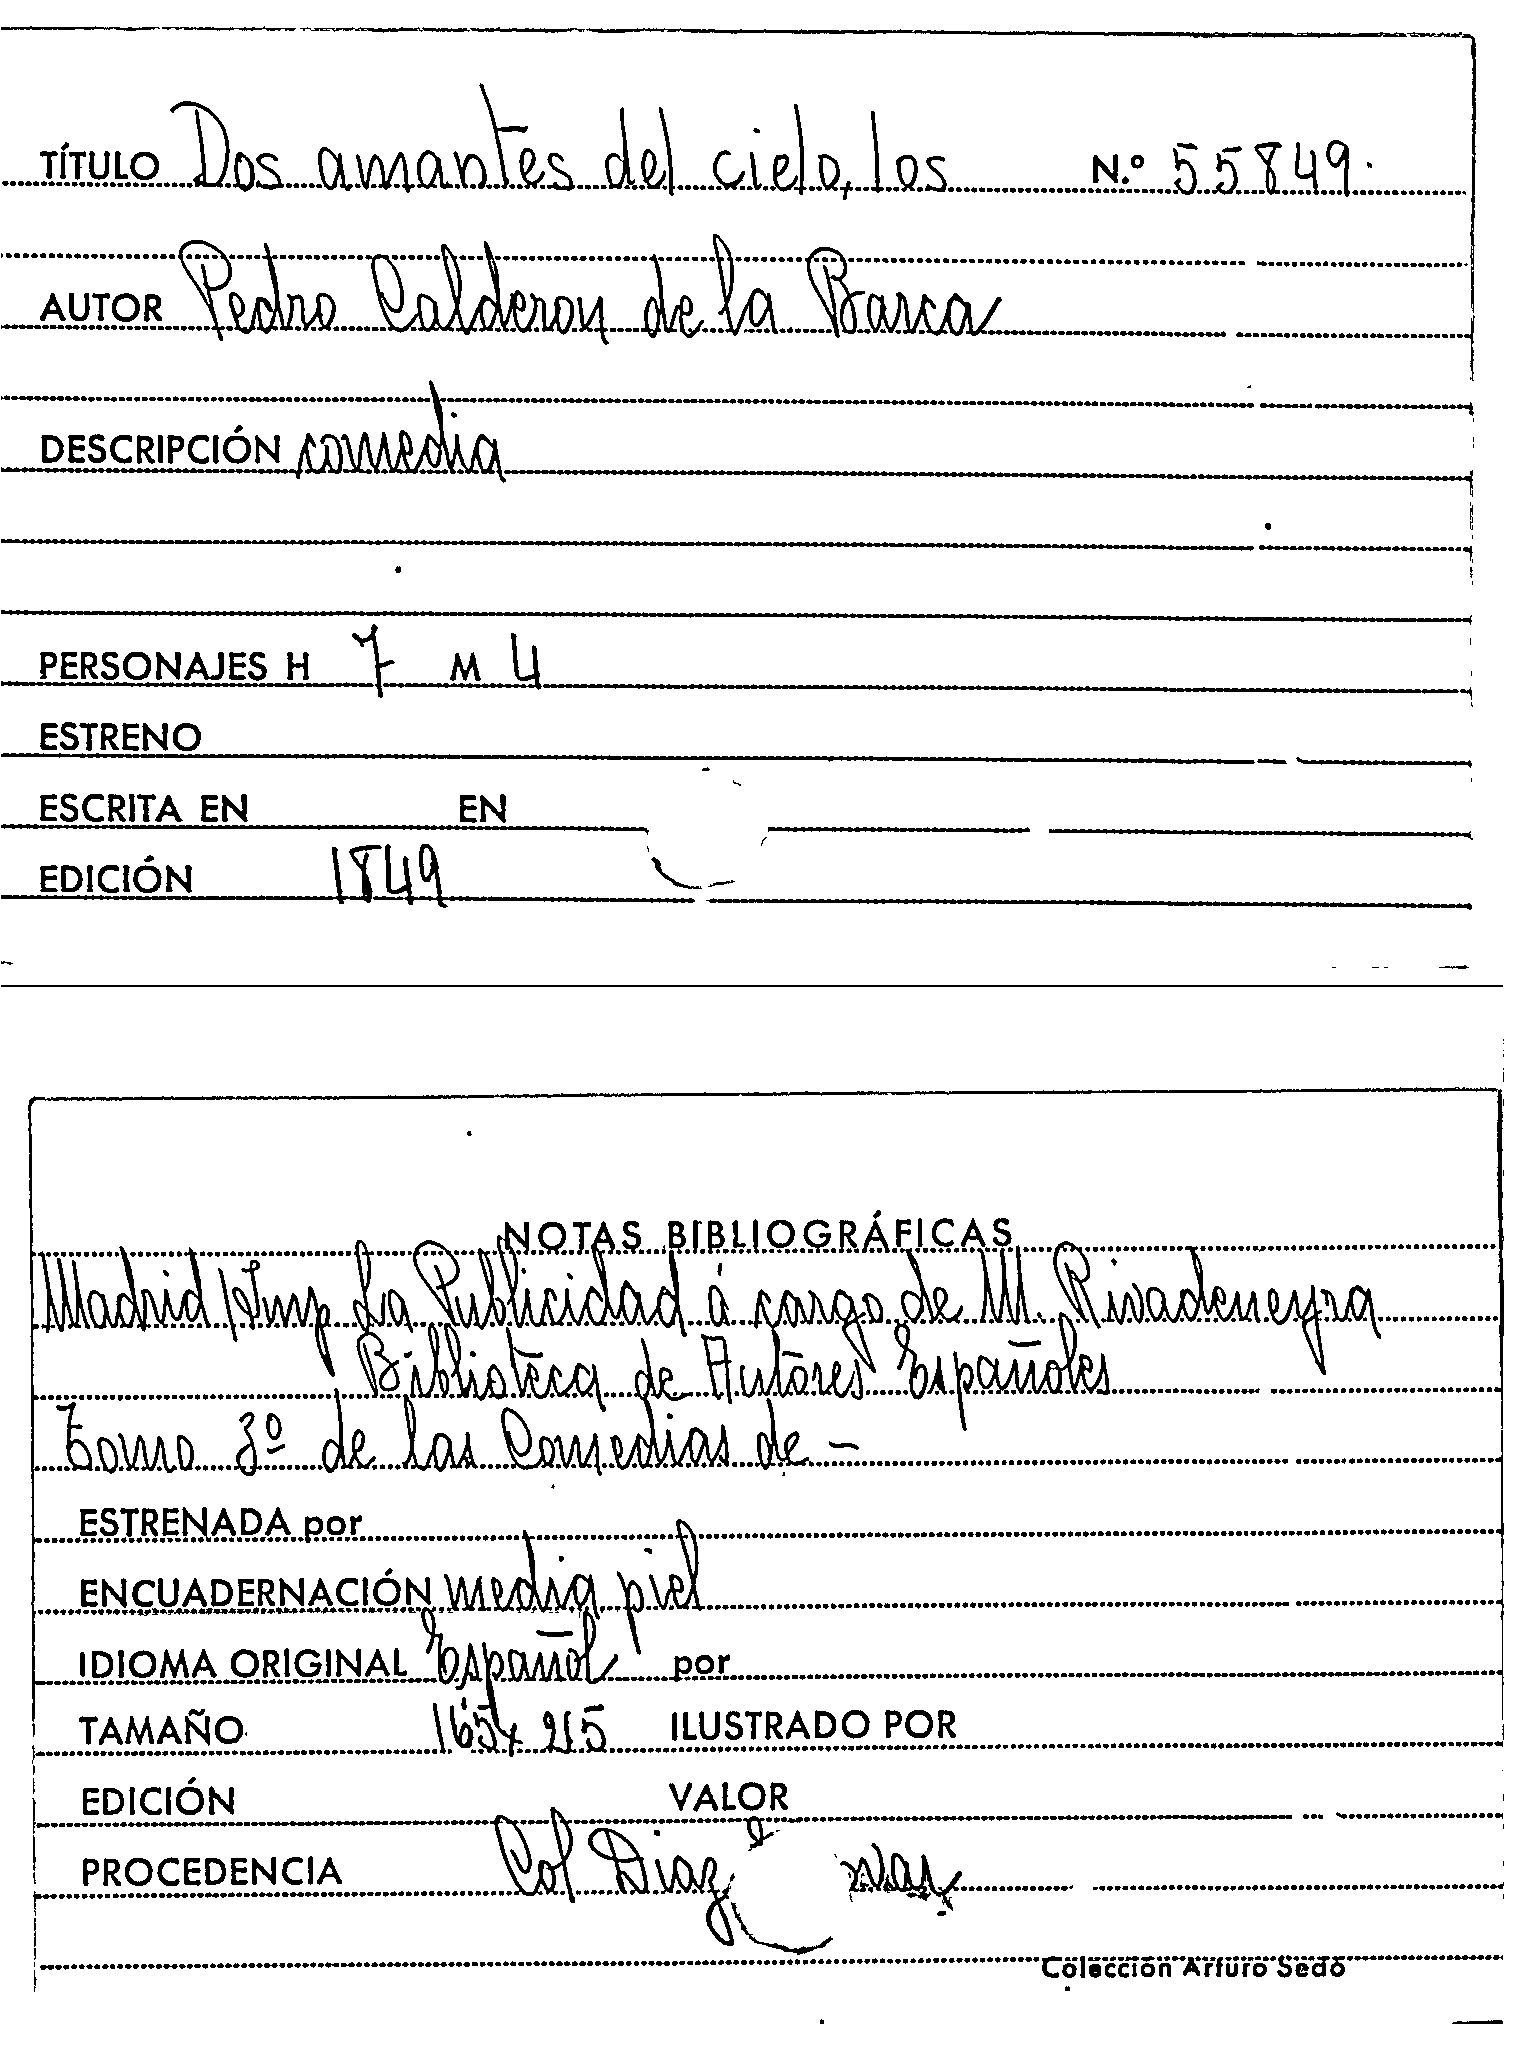 TÍTULO Dos amantes del cielo, los N.º 55849.
AUTOR Pedro Calderon de la Barca
DESCRIPCIÓN comedia
PERSONAJES H 7 M 4
ESTRENO
ESCRITA EN EN
EDICIÓN 1849
NOTAS BIBLIOGRÁFICAS
Madrid / Imp La Publicidad á cargo de M. Rivadeneyra
Biblioteca de Autores Españoles
Tomo 3º de las Comedias de -
ESTRENADA por
ENCUADERNACIÓN media piel
IDIOMA ORIGINAL Español por
TAMAÑO 165 x 215 ILUSTRADO POR
EDICIÓN VALOR
PROCEDENCIA Col Diaz
Colección Arturo Sedó